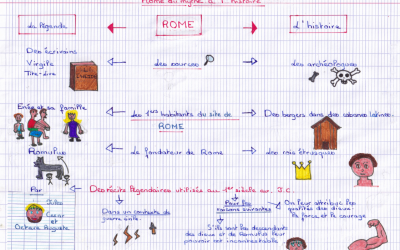 Rome du mythe à l'histoire
La légende
ROME
d'histoire
Des Écrivains
Virgile
Tite-Live
des sources
des archéologues
Enée et sa famille
Les 1ers habitants du site de
ROME
Des bergers dans des cabanes latines
Romulus
Le fondateur de Rome
des rois étrusques
Par
Des récits légendaires utilisés au 1er siècle av. J.C.
Jules
César
et
Octave Auguste
Dans un contexte de
guerre civile.
Pour les
raisons suivantes
On leur attribue les
qualités des dieux :
la force et le courage
S'ils sont les descendants
des dieux et de Romulus leur
pouvoir est incontestable